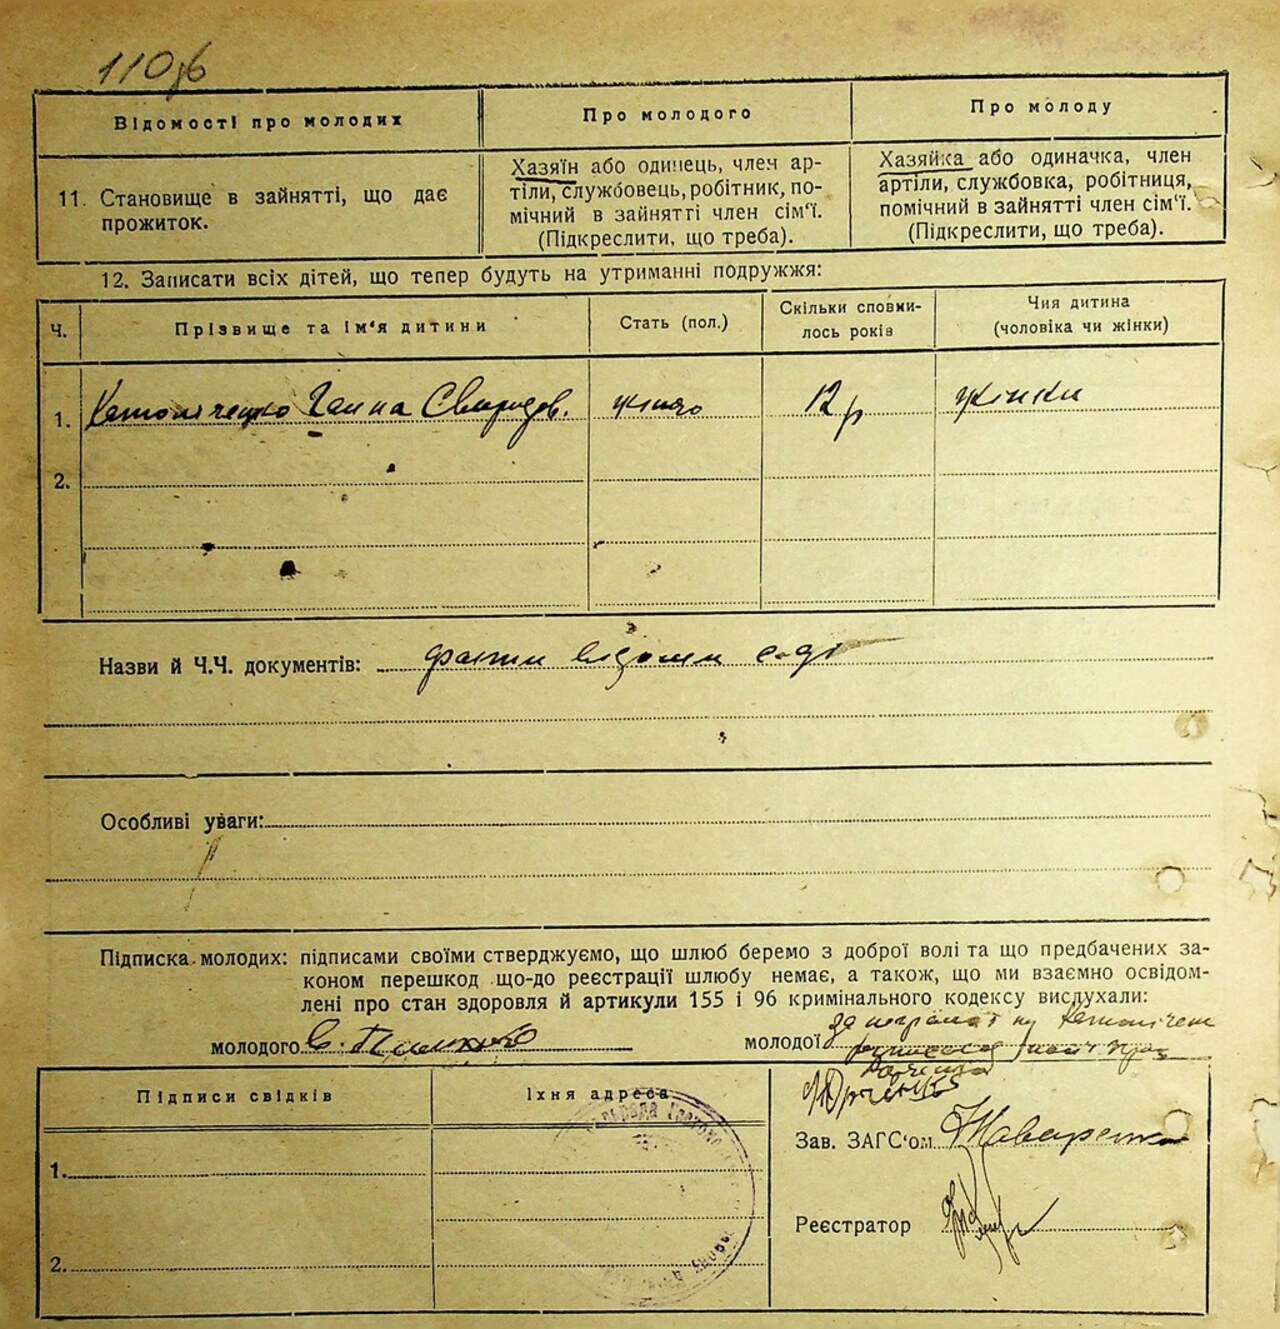 110
Відомості про молодих
Про молодого
Про молоду
11. Становище в зайнятті, що дає
прожиток.
Хазяїн або одинець, член ар-
тіли, службовець, робітник, по-
мічний в зайнятті член сім'ї.
(Підкреслити, що треба).
Хазяйка або одиначка, член
артіли, службовка, робітниця,
помічний в зайнятті член сім'ї.
(Підкреслити, що треба).
12. Записати всіх дітей, що тепер будуть на утриманні подружжя:
Ч.
Прізвище та ім'я дитини
Стать (пол.)
Скільки сповни-
лось років
Чия дитина
(чоловіка чи жінки)
1. Ганна Свиридов. жіноч 12 р жінки
2.
Назви й Ч.Ч. документів: факти відомі
Особливі уваги:
Підписка молодих: підписами своїми стверджуємо, що шлюб беремо з доброї волі та що предбачених за-
коном перешкод що-до реєстрації шлюбу немає, а також, що ми взаємно освідом-
лені про стан здоровля й артикули 155 і 96 кримінального кодексу вислухали:
молодого
молодої
Підписи свідків
Їхня адреса
1.
2.
Зав. ЗАГС'ом
Реєстратор